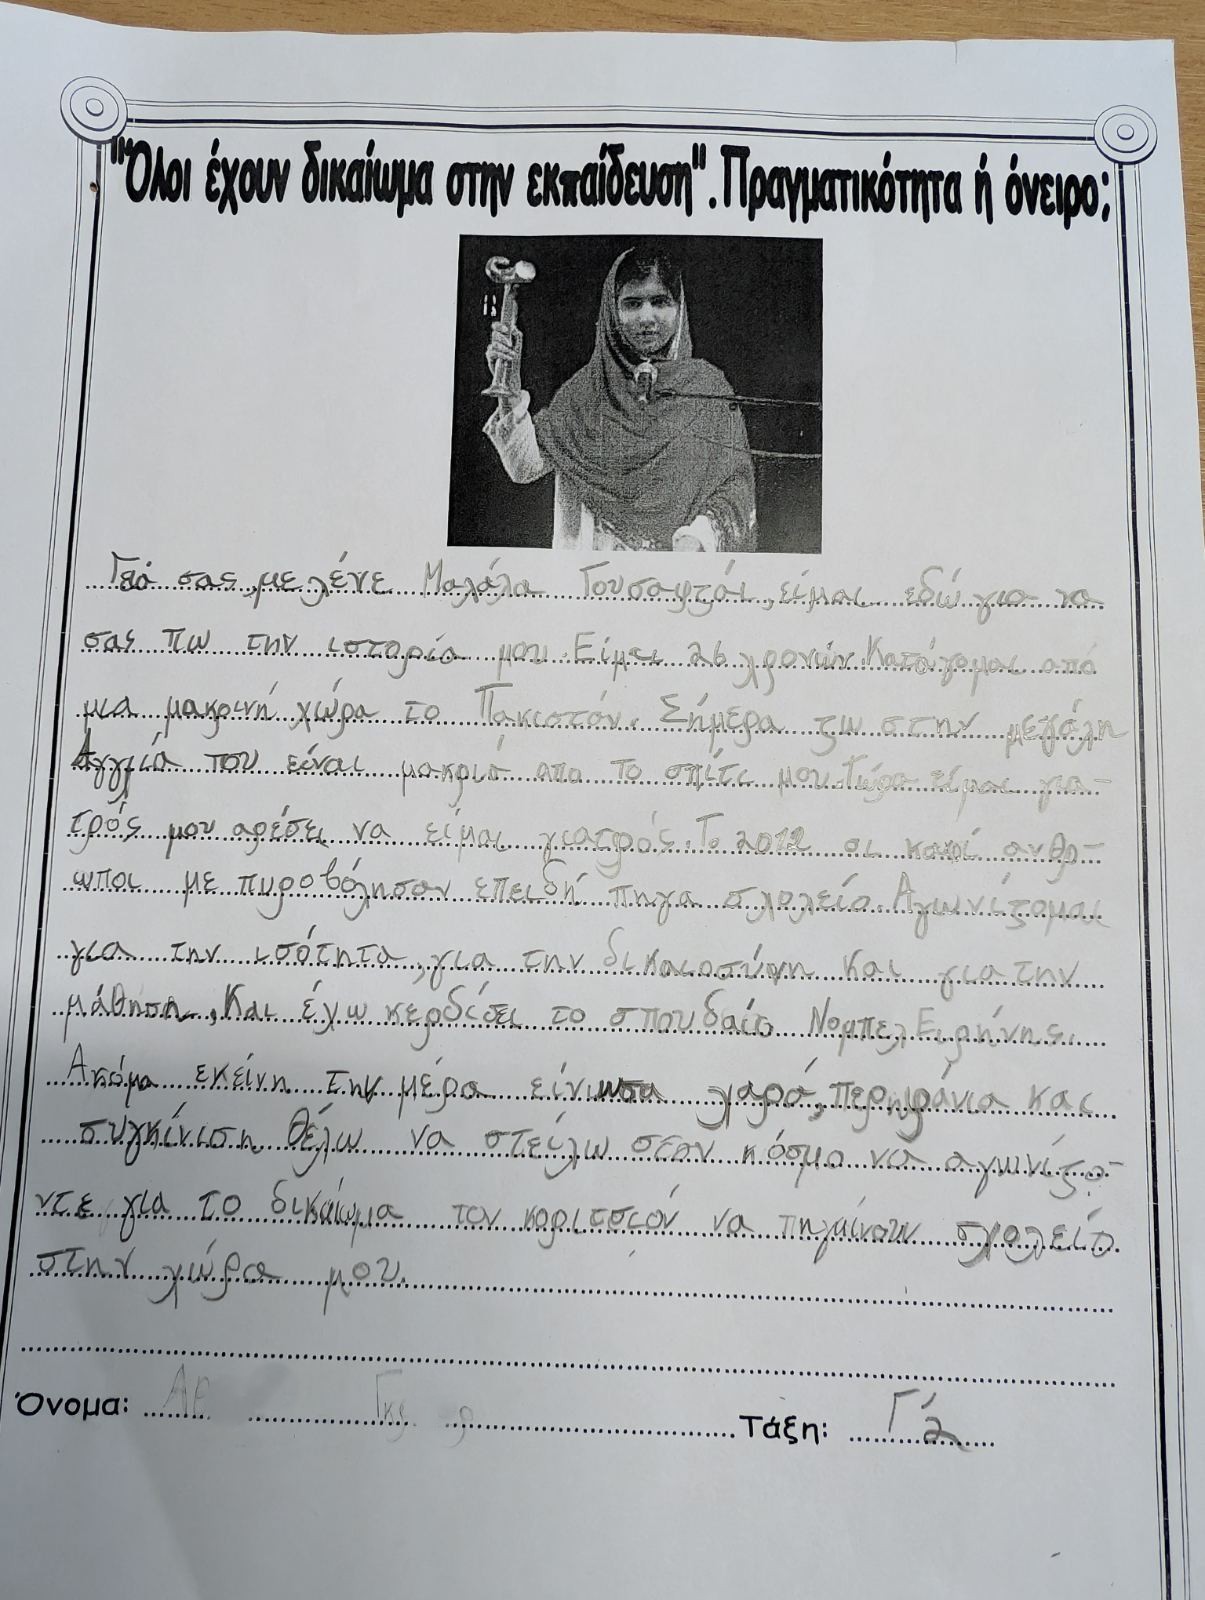 "Όλοι έχουν δικαίωμα στην εκπαίδευση". Πραγματικότητα ή όνειρο;
Γεά σας, με λένε Μαλάλα Γιουσαφζάι, είμαι εδώ για να
σας πω την ιστορία μου. Είμαι 26 χρονών. Κατάγομαι από
μια μακρινή χώρα το Πακιστάν. Σήμερα ζω στην μεγάλη
Αγγλιά που είναι μακριά απο το σπίτι μου. Τώρα είμαι για-
τρός μου αρέσει να είμαι γιατρός. Το 2012 οι κακοί ανθρ-
ωποι με πυροβόλησαν επειδή πηγα σχολείο. Αγωνίζομαι
για την ισότητα, για την δικαιοσύνη και για την
μάθηση, και έχω κερδίσει το σπουδαίο Νομπελ Ειρήνης.
Ακόμα εκείνη την μέρα είνωσα χαρά, περηφάνια και
συγκίνιση θέλω να στείλω στον κόσμο να αγωνίζο-
ντε για το δικαίωμα τον κοριτσιόν να πηγαίνουν σχολείο
στην χώρα μου.
Όνομα: Τάξη: Γ'2